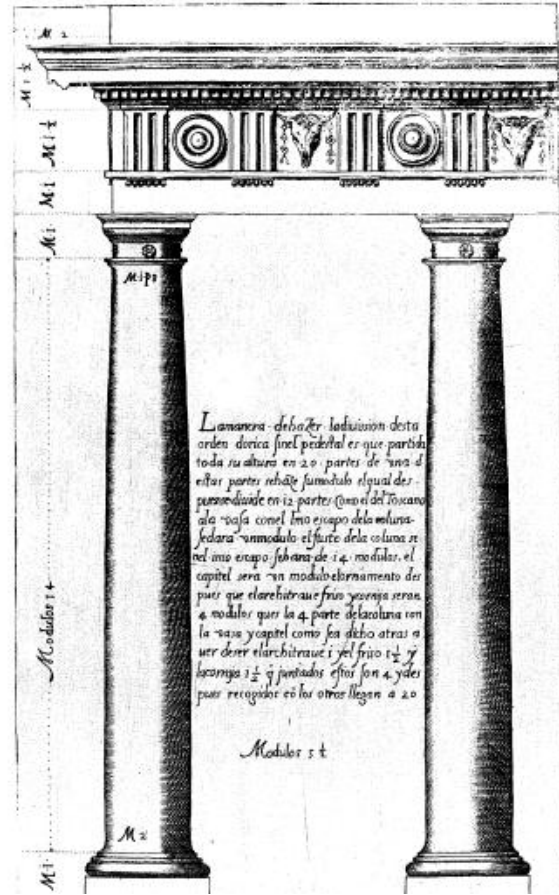 M 2
M 1 ½
M 1 ½
M 1
M 1
M 1 p 8
Lamanera dehazer ladiuission desta
orden dorica sinel pedestal es que partida
toda su altura en 20 partes de una d
estas partes sehaze sumodulo elqual des-
puessediuide en 12 partes Como el del Toscano
ala vasa conel Imo escapo dela coluna
sedara unmodulo el fuste dela coluna se
nel imo escapo sehara de 14 modulos. el
capitel sera un modulo elornamento des
pues que elarchitraue friso ycornija seran
4 modulos ques la 4 parte delacoluna con
la vasa ycapitel como sea dicho atras a
uer deser elarchitraue 1 yel friso 1½ y
lacornija 1½ q̃ juntados estos son 4 ydes
pues recogidos cõ los otros llegan a 20
Modulos 14
Modulos 5 t
M 2
M 1